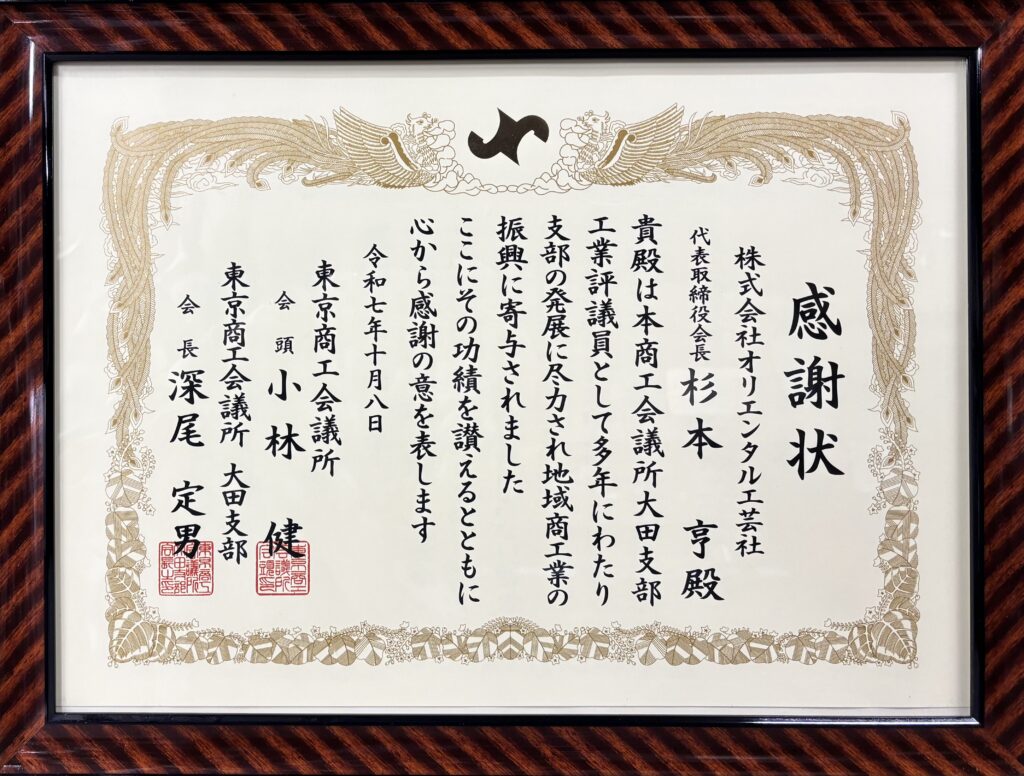 感謝状
株式会社オリエンタル工芸社
代表取締役会長 杉本 亨殿
貴殿は本商工会議所大田支部
工業評議員として多年にわたり
支部の発展に尽力され地域商工業の
振興に寄与されました
ここにその功績を讃えるとともに
心から感謝の意を表します
令和七年十月八日
東京商工会議所
会頭 小林 健
東京商工会議所 大田支部
会長 深尾 定男